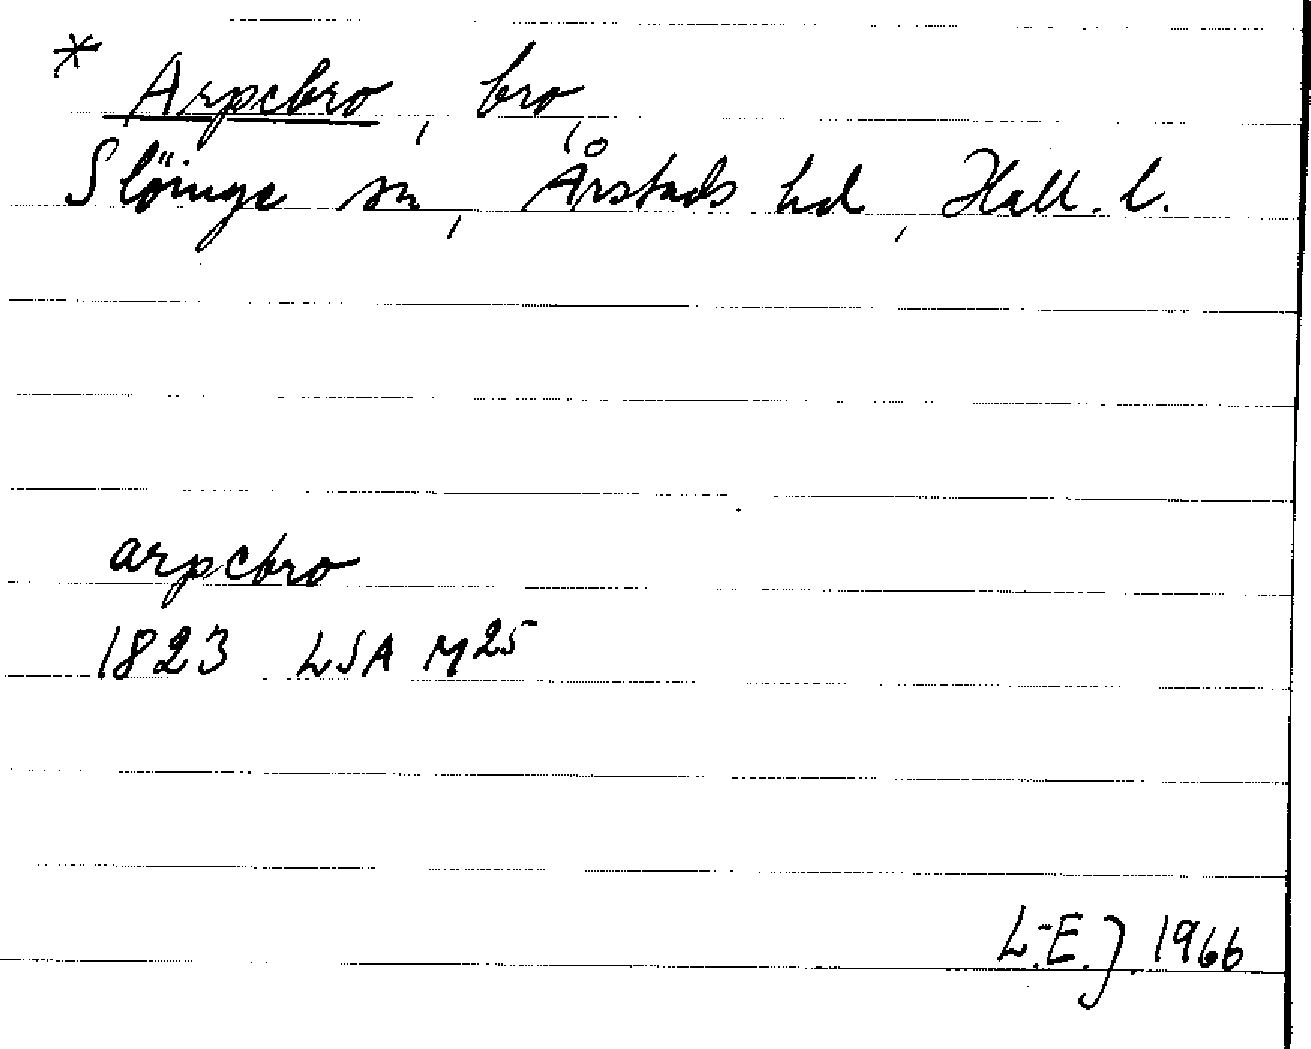 * Arpebro, bro,
Slöinge sn, Årstads hd, Hall. l.
arpebro
1823 LSA M25
L-E.J. 1966